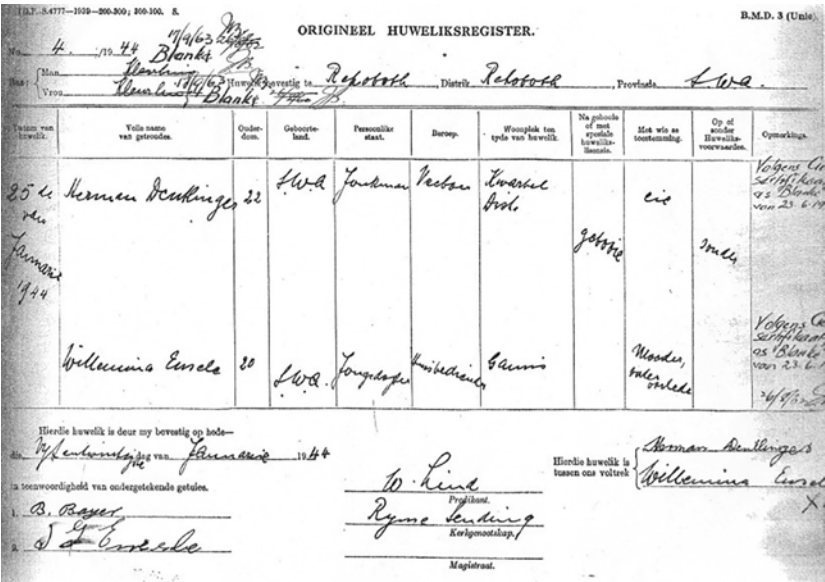 U.D.P.—S.4777—1939—200,300; 300-100. S.
B.M.D. 3 (Unie).
ORIGINEEL HUWELIKSREGISTER.
No. 4. /19 44
17/9/63
Blanke
Ras: Man Kleurling
Vrou Kleurling Blanke
Huwelik bevestig te Rehoboth, Distrik Rehoboth, Provinsie S.W.A.
Datum van huwelik.
Volle name van getroudes.
Ouderdom.
Geboorteland.
Persoonlike staat.
Beroep.
Woonplek ten tyde van huwelik.
Na gebooie of met spesiale huwelikslisensie.
Met wie se toestemming.
Op of sonder Huweliksvoorwaardes.
Opmerkings.
25 de van Januarie 1944
Herman Denklinger 22 S.W.A Jonkman Veeboer Distr eie
gebooie sonder
Volgens
sertifikaat
as Blanke
van 23.6.19
Willemina 20 S.W.A. Jongdogter Huisbediende Gaunis Moeder, vader oorlede
Volgens
sertifikaat
as "Blanke"
van 23.6.1
Hierdie huwelik is deur my bevestig op hede—
die Vyfentwintigste dag van Januarie 1944
in teenwoordigheid van ondergetekende getuies.
1. B. Bayer
2.
W. Lind
Predikant.
Rynse Sending
Kerkgenootskap.
Magistraat.
Hierdie huwelik is tussen ons voltrek
Herman Denklinger
Willemina
X